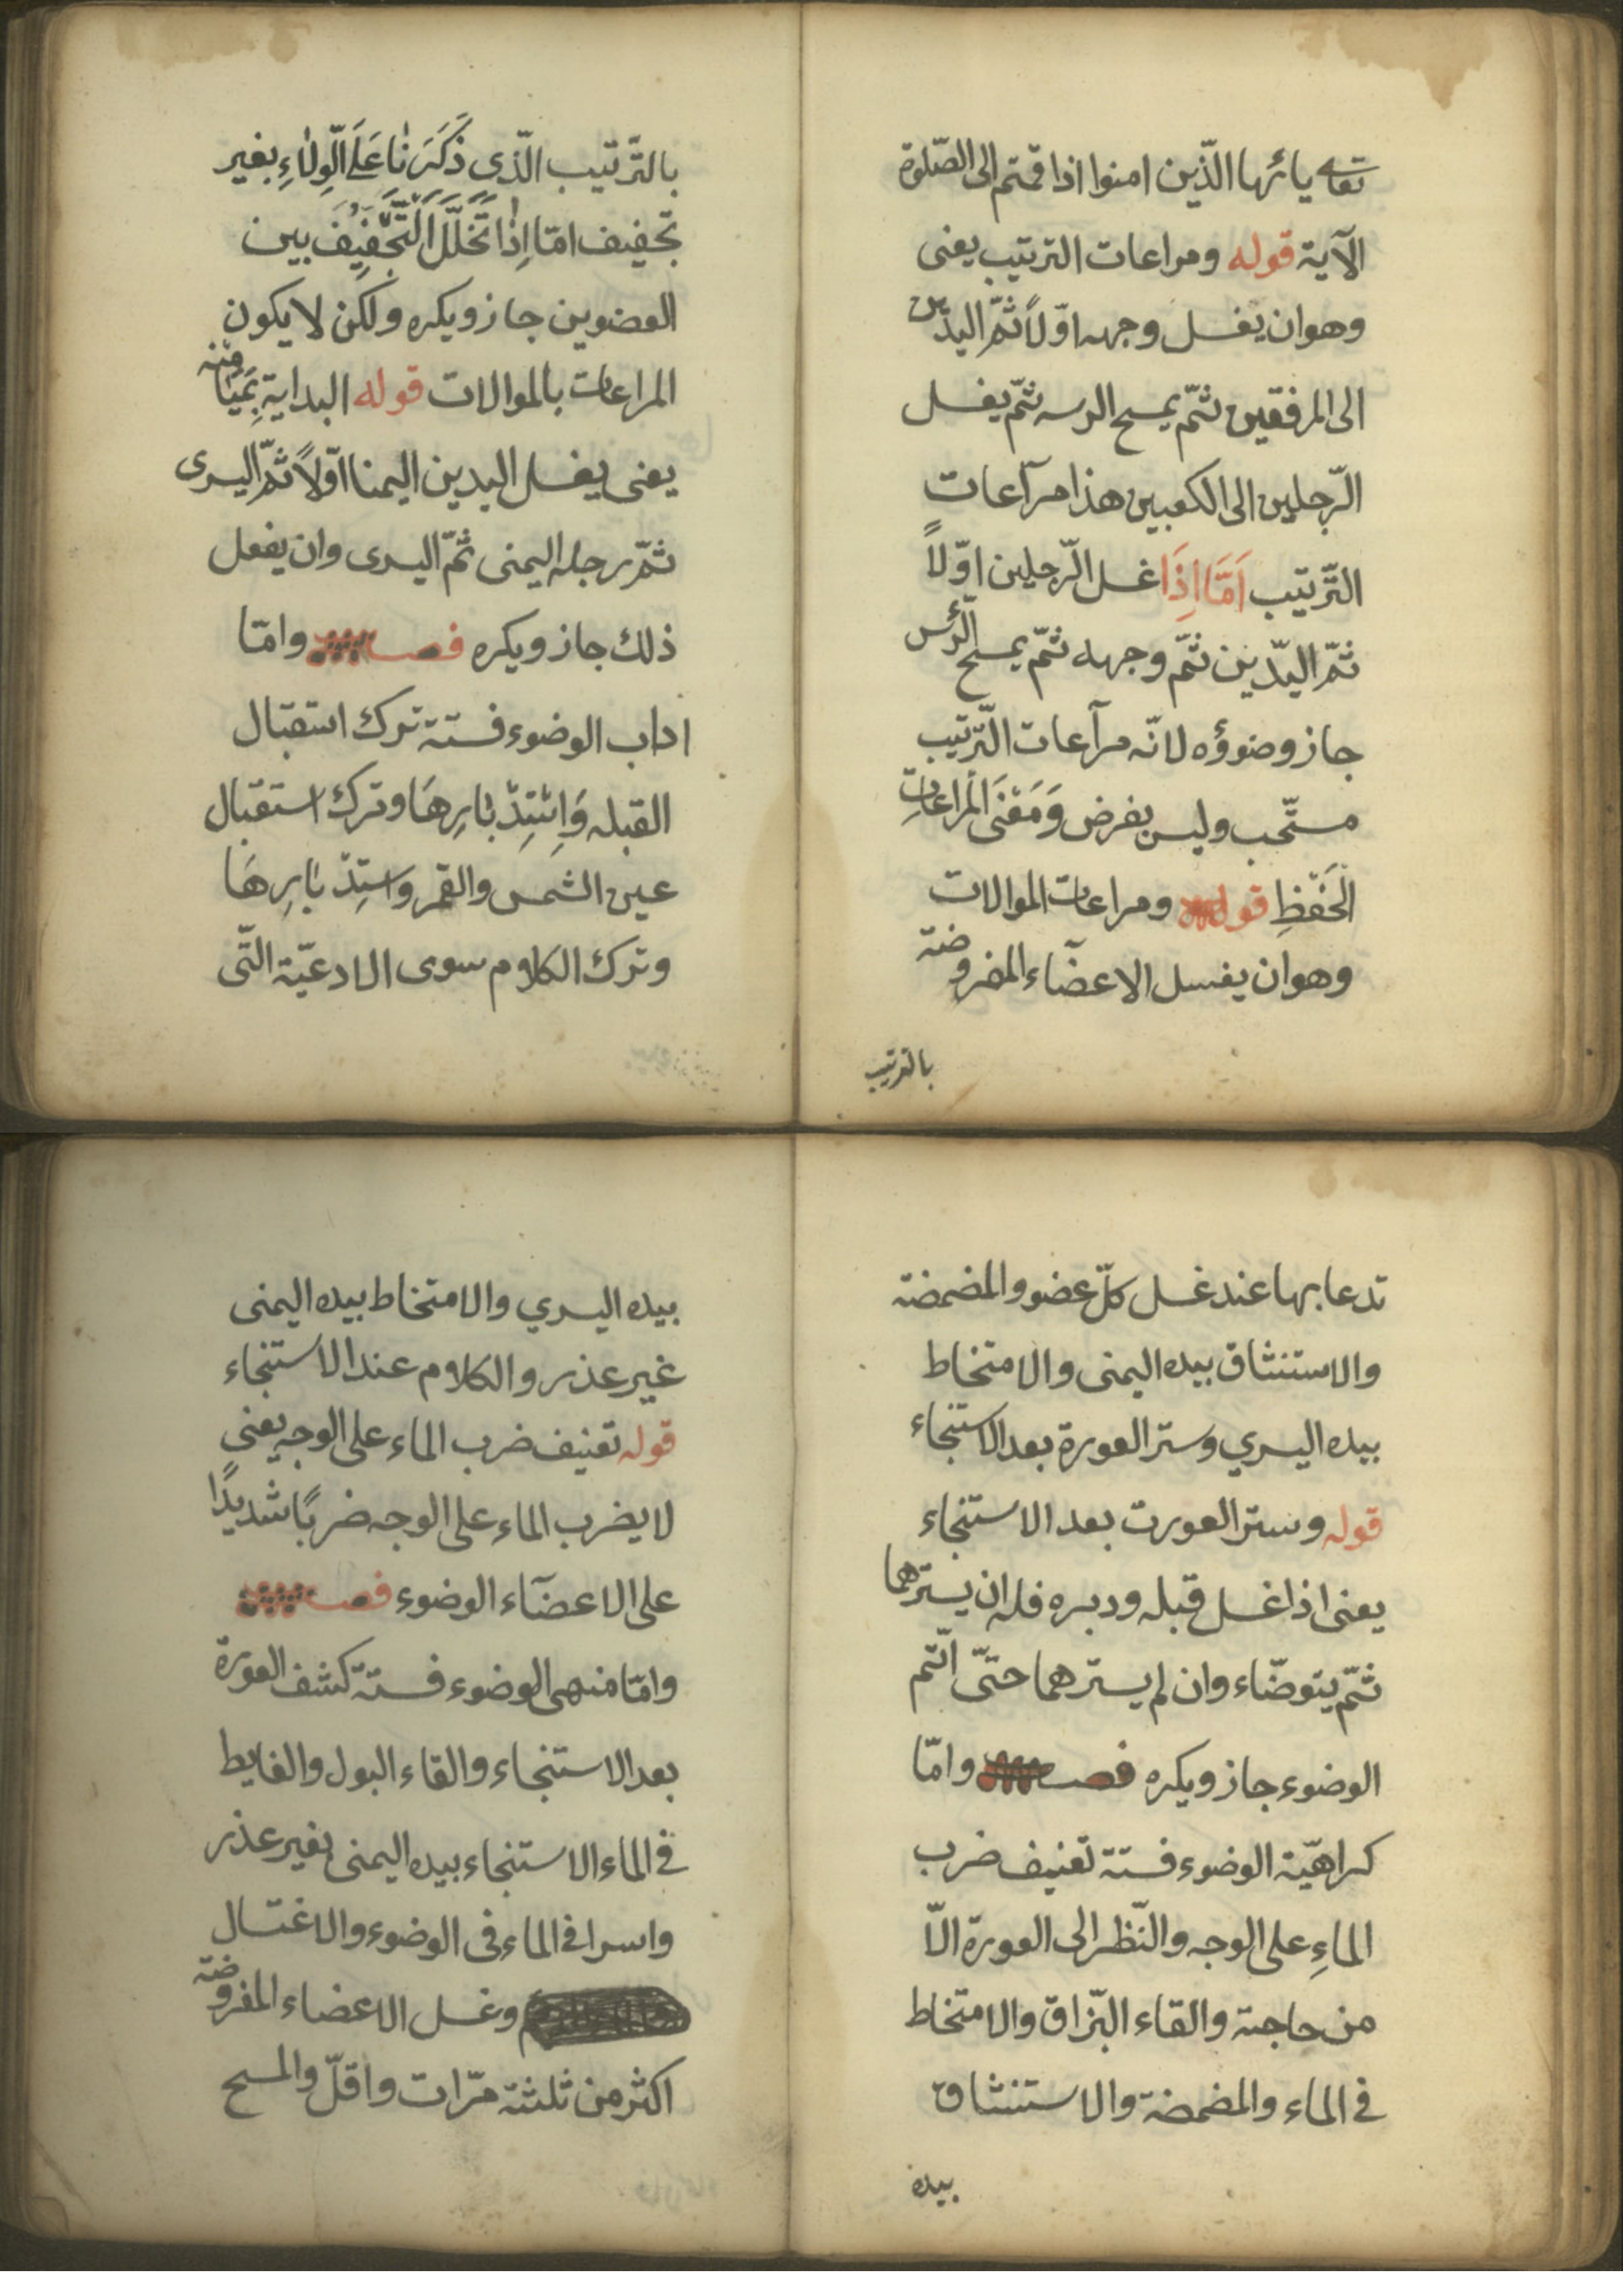 تعالى يائيها الّذين امنوا اذا قمتم الى الصّلوة
الآية قوله ومراعات الترتيب يعنى
وهوان يغسل وجهه اوّلاً ثمّ اليدين
الى المرفقين ثمّ يمسح الرسه ثمّ يغسل
الرّجلين الى الكعبين هذا مرآعات
التّرتيب اَمَّا اِذَا غسل الرّجلين اوّلاً
ثمّ اليدّين ثمّ وجهه ثمّ يمسح الرّئس
جاز وضوؤه لانّه مرآعات التّرتيب
مستّحب وليس بفرض وَمَعْنَى الْمُراعاتِ
الْحَفْظِ قوله ومراعات الموالات
وهوان يغسل الاعضآء المفروضة
بالترتيب
بالتّرتيب الّذى ذَكَرَنَا عَلَى الْوِلَاءِ بغير
تجفيف امّا اِذَا تَخَلَّلَ التَّجْفِيفَ بين
العضوين جاز ويكره ولكن لا يكون
المراعات بالموالات قوله البداية بِمَيَامنه
يعنى يغسل اليدين اليمنا اوّلاً ثمّ اليسرى
ثمّ رجله اليمنى ثمّ اليسرى وان يفعل
ذلك جاز ويكره فصل وامّا
اداب الوضوء فستة ترك استقبال
القبله وَاِسْتِدْبَارِهَا وترك استقبال
عين الشمس والقمر واستِدْبَارِهَا
وترك الكلام سوى الادعيّة الّتى
تدعا بها عند غسل كلّ عضو والمضمضة
والاستنشاق بيده اليمنى والامتخاط
بيده اليسري وستر العورة بعد الاستنجاء
قوله وستر العورت بعد الاستنجاء
يعنى اذا غسل قبله ودبره فله ان يسترهما
ثمّ يتوضّاء وان لم يسترهما حتّى اتّم
الوضوء جاز ويكره فصل وامّا
كراهيّة الوضوء فستة تعنيف ضرب
الماءِ على الوجه والنّظر الى العورة الّا
من حاجة والقاء البّزاق والامتخاط
فى الماء والمضمضة والاستنشاق
بيده
بيده اليسري والامتخاط بيده اليمنى
غير عذر والكلام عند الاستنجاء
قوله تعنيف ضرب الماء على الوجه يعنى
لا يضرب الماء على الوجه ضربًا شديدًا
على الاعضآء الوضوء فصل
وامّا منهى الوضوء فستة كشف العورة
بعد الاستنجاء والقاء البول والغايط
فى الماء الاستنجاء بيده اليمنى بغير عذر
واسراف الماء فى الوضوء والاغتسال
وغسل الاعضاء المفروضة
اكثر من ثلثة مرّات واقلّ والمسح